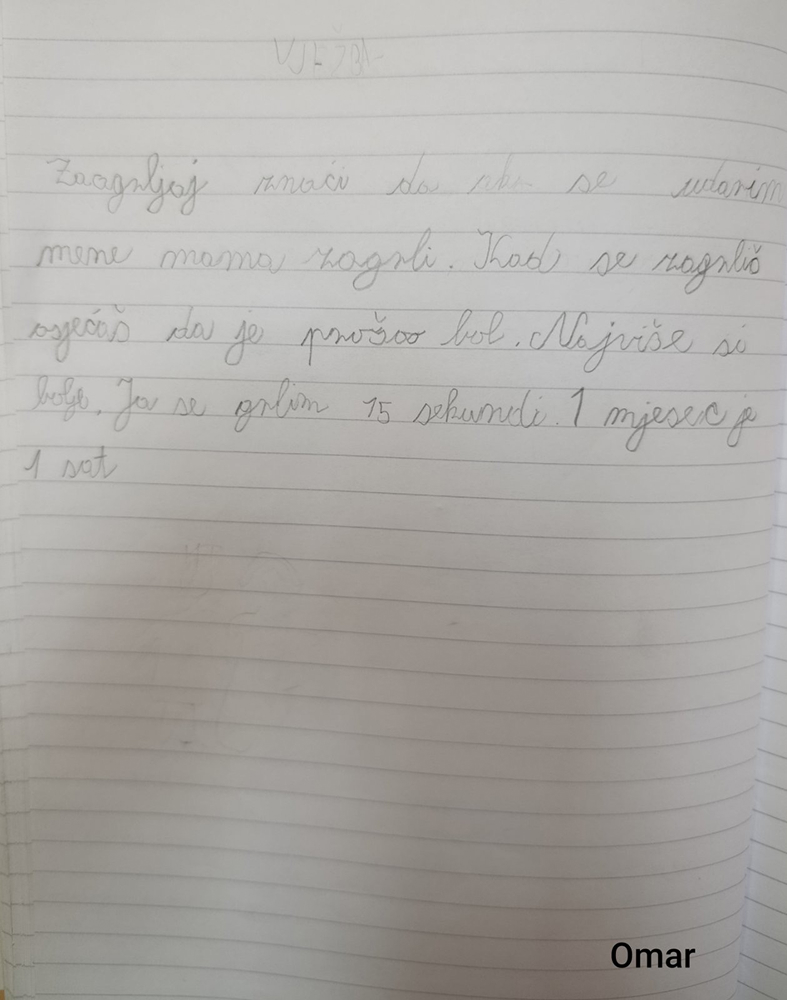 VJEŽBA
Zaagrljaj znaći da ako se udarim
mene mama zagrli. Kad se zagrliš
osjećaš da je prošoo bol. Najviše si
bolje. Ja se grlim 15 sekundi. 1 mjesec je
1 sat
Omar